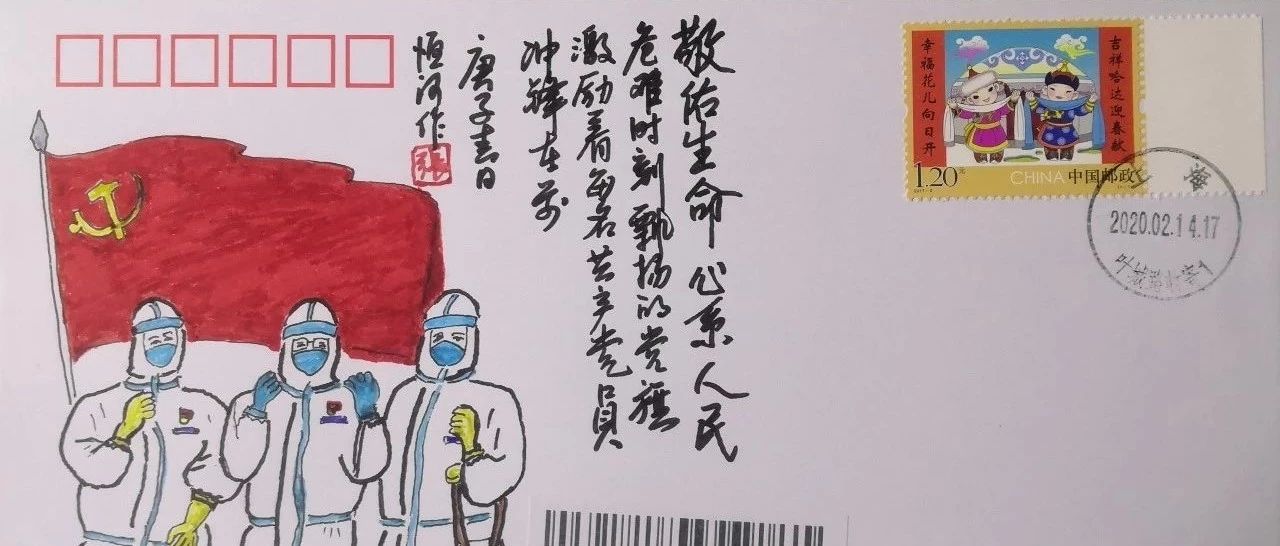 敬佑生命 心系人民
危难时刻飘扬的党旗
激励着每名共产党员
冲锋在前
庚子春日
恒河作
吉祥哈达迎春献
幸福花儿向日开
1.20元
CHINA 中国邮政
2020.02.14.17